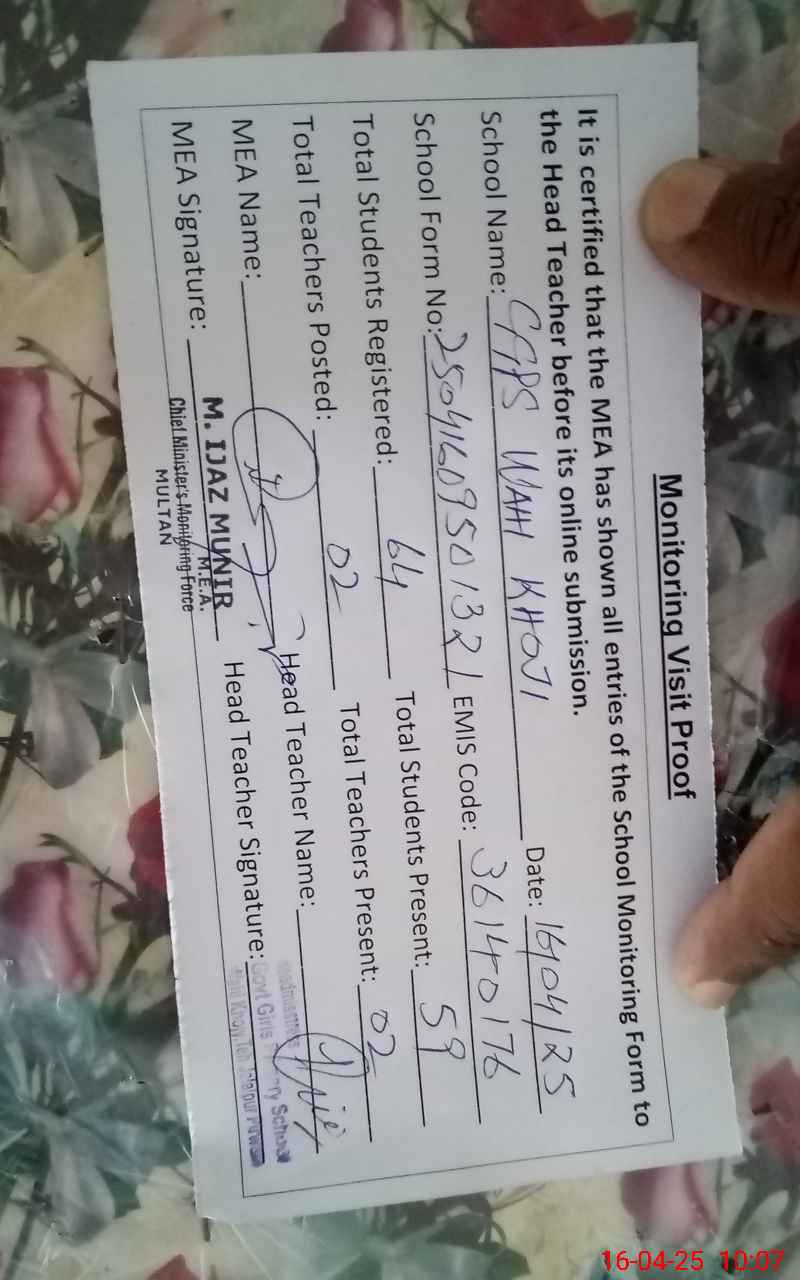 Monitoring Visit Proof
It is certified that the MEA has shown all entries of the School Monitoring Form to
the Head Teacher before its online submission.
School Name: GGPS WAHI KHOJI Date: 16/04/25
School Form No: 25041609501321 EMIS Code: 36140176
Total Students Registered: 64 Total Students Present: 59
Total Teachers Posted: 02 Total Teachers Present: 02
MEA Name: Head Teacher Name:
MEA Signature: Head Teacher Signature:
M. IJAZ MUNIR
M.E.A.
Chief Minister's Monitoring Force
MULTAN
Govt Girls Primary School
16-04-25 10:07